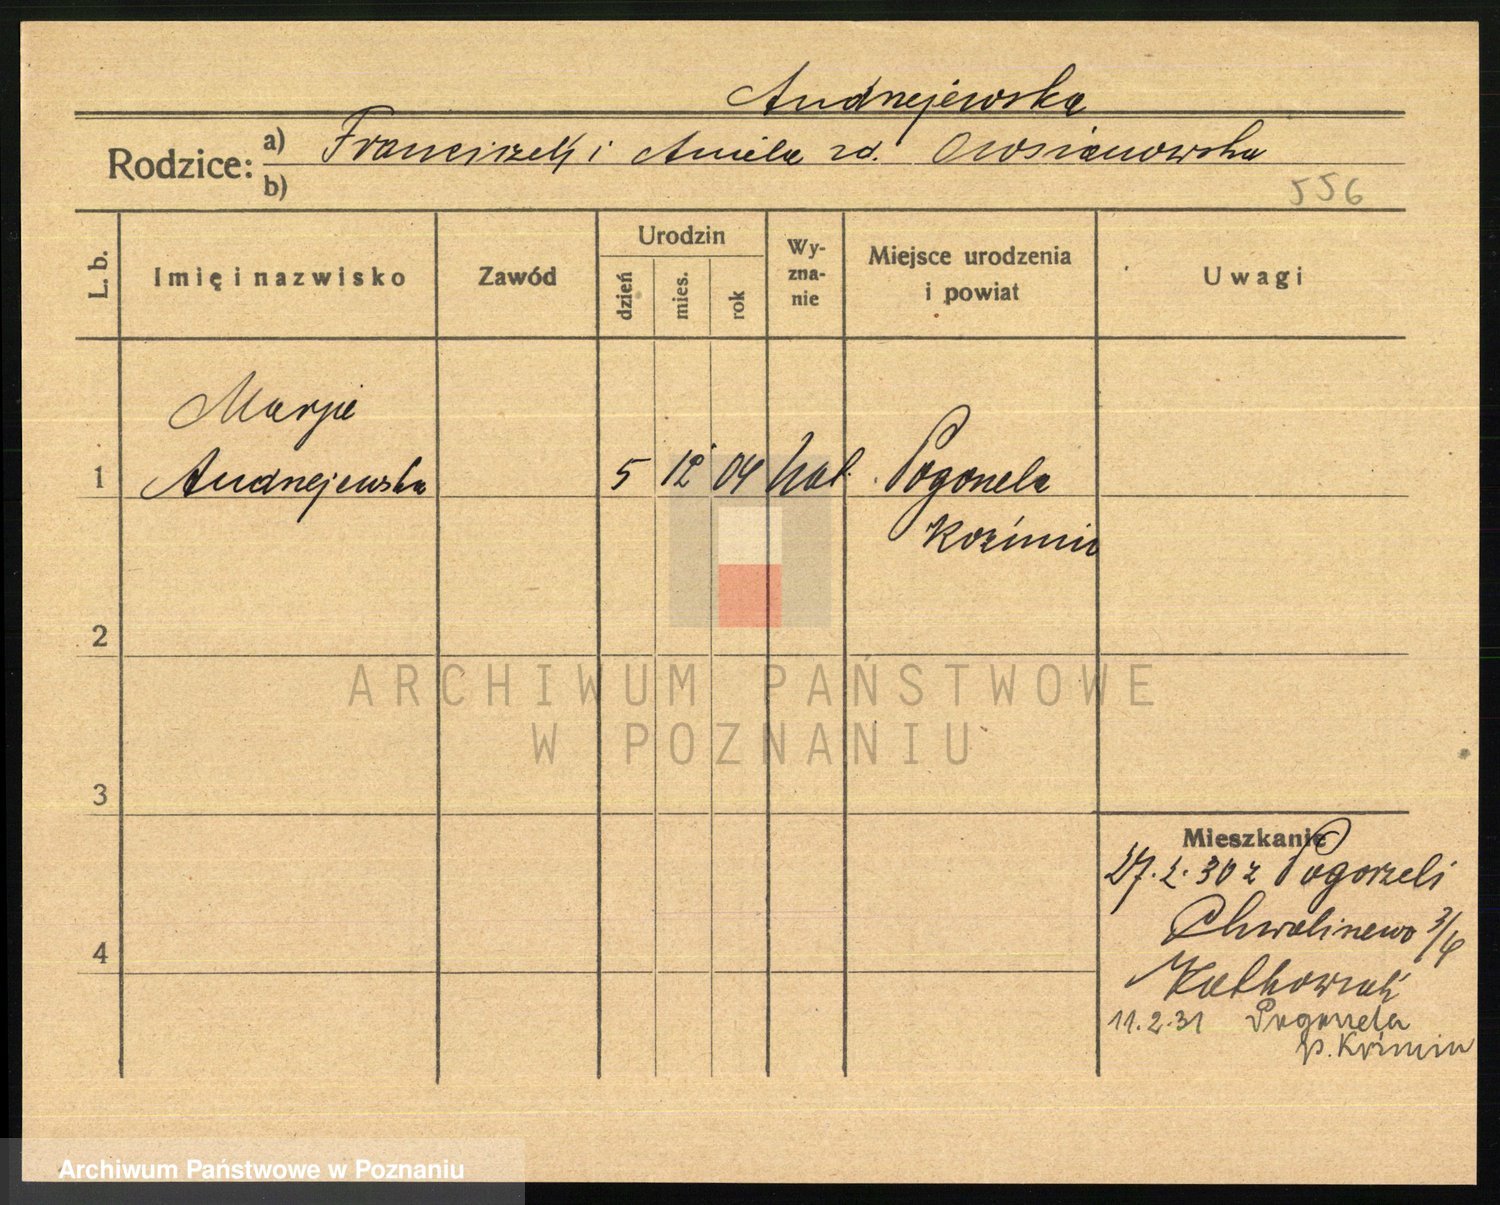 Andrzejewska
Rodzice: a) Franciszek i Aniela zd. Owsianowska
b)
556
L. b. Imię i nazwisko Zawód Urodzin dzień mies. rok Wyznanie Miejsce urodzenia i powiat Uwagi
Marja
1 Andrzejewska 5 12 04 kat. Pogorzela
Koźmin
2
ARCHIWUM PAŃSTWOWE
W POZNANIU
3
Mieszkanie
27.2.30 z Pogorzeli
Chwaliszewo
4
11.2.31 Pogorzela
p. Koźmin
Archiwum Państwowe w Poznaniu